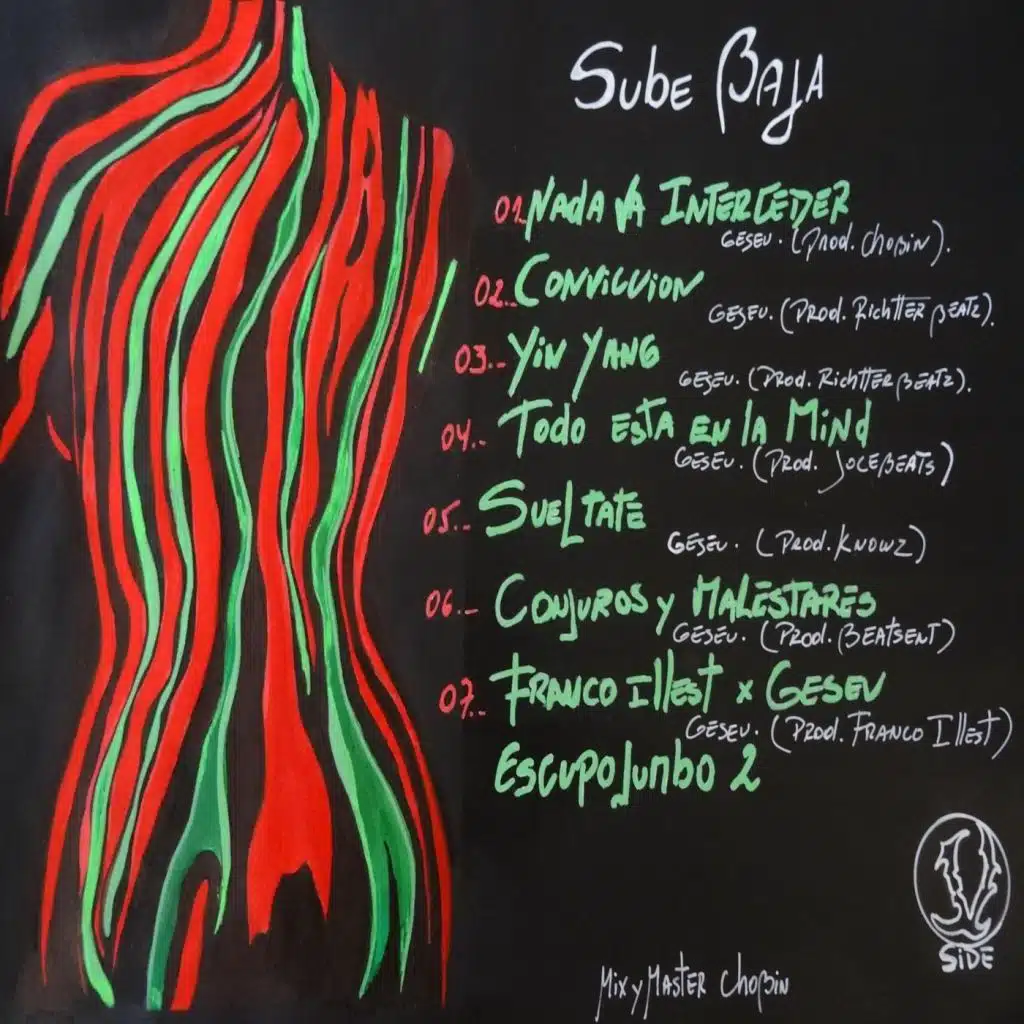 Sube Baja
01. Nada va Interceder
Geseu. (Prod. Chobin).
02.. Conviccion
Geseu. (Prod. Richtter Beatz).
03.- Yin Yang
Geseu. (Prod. Richtter Beatz).
04.. Todo esta en la Mind
Geseu. (Prod. JoceBeats)
05.. Sueltate
Geseu. (Prod. Knowz)
06.. Conjuros y Malestares
Geseu. (Prod. Beatsent)
07.. Franco Illest x Geseu
Geseu. (Prod. Franco Illest)
Escupojumbo 2
Side
Mix y Master Chobin